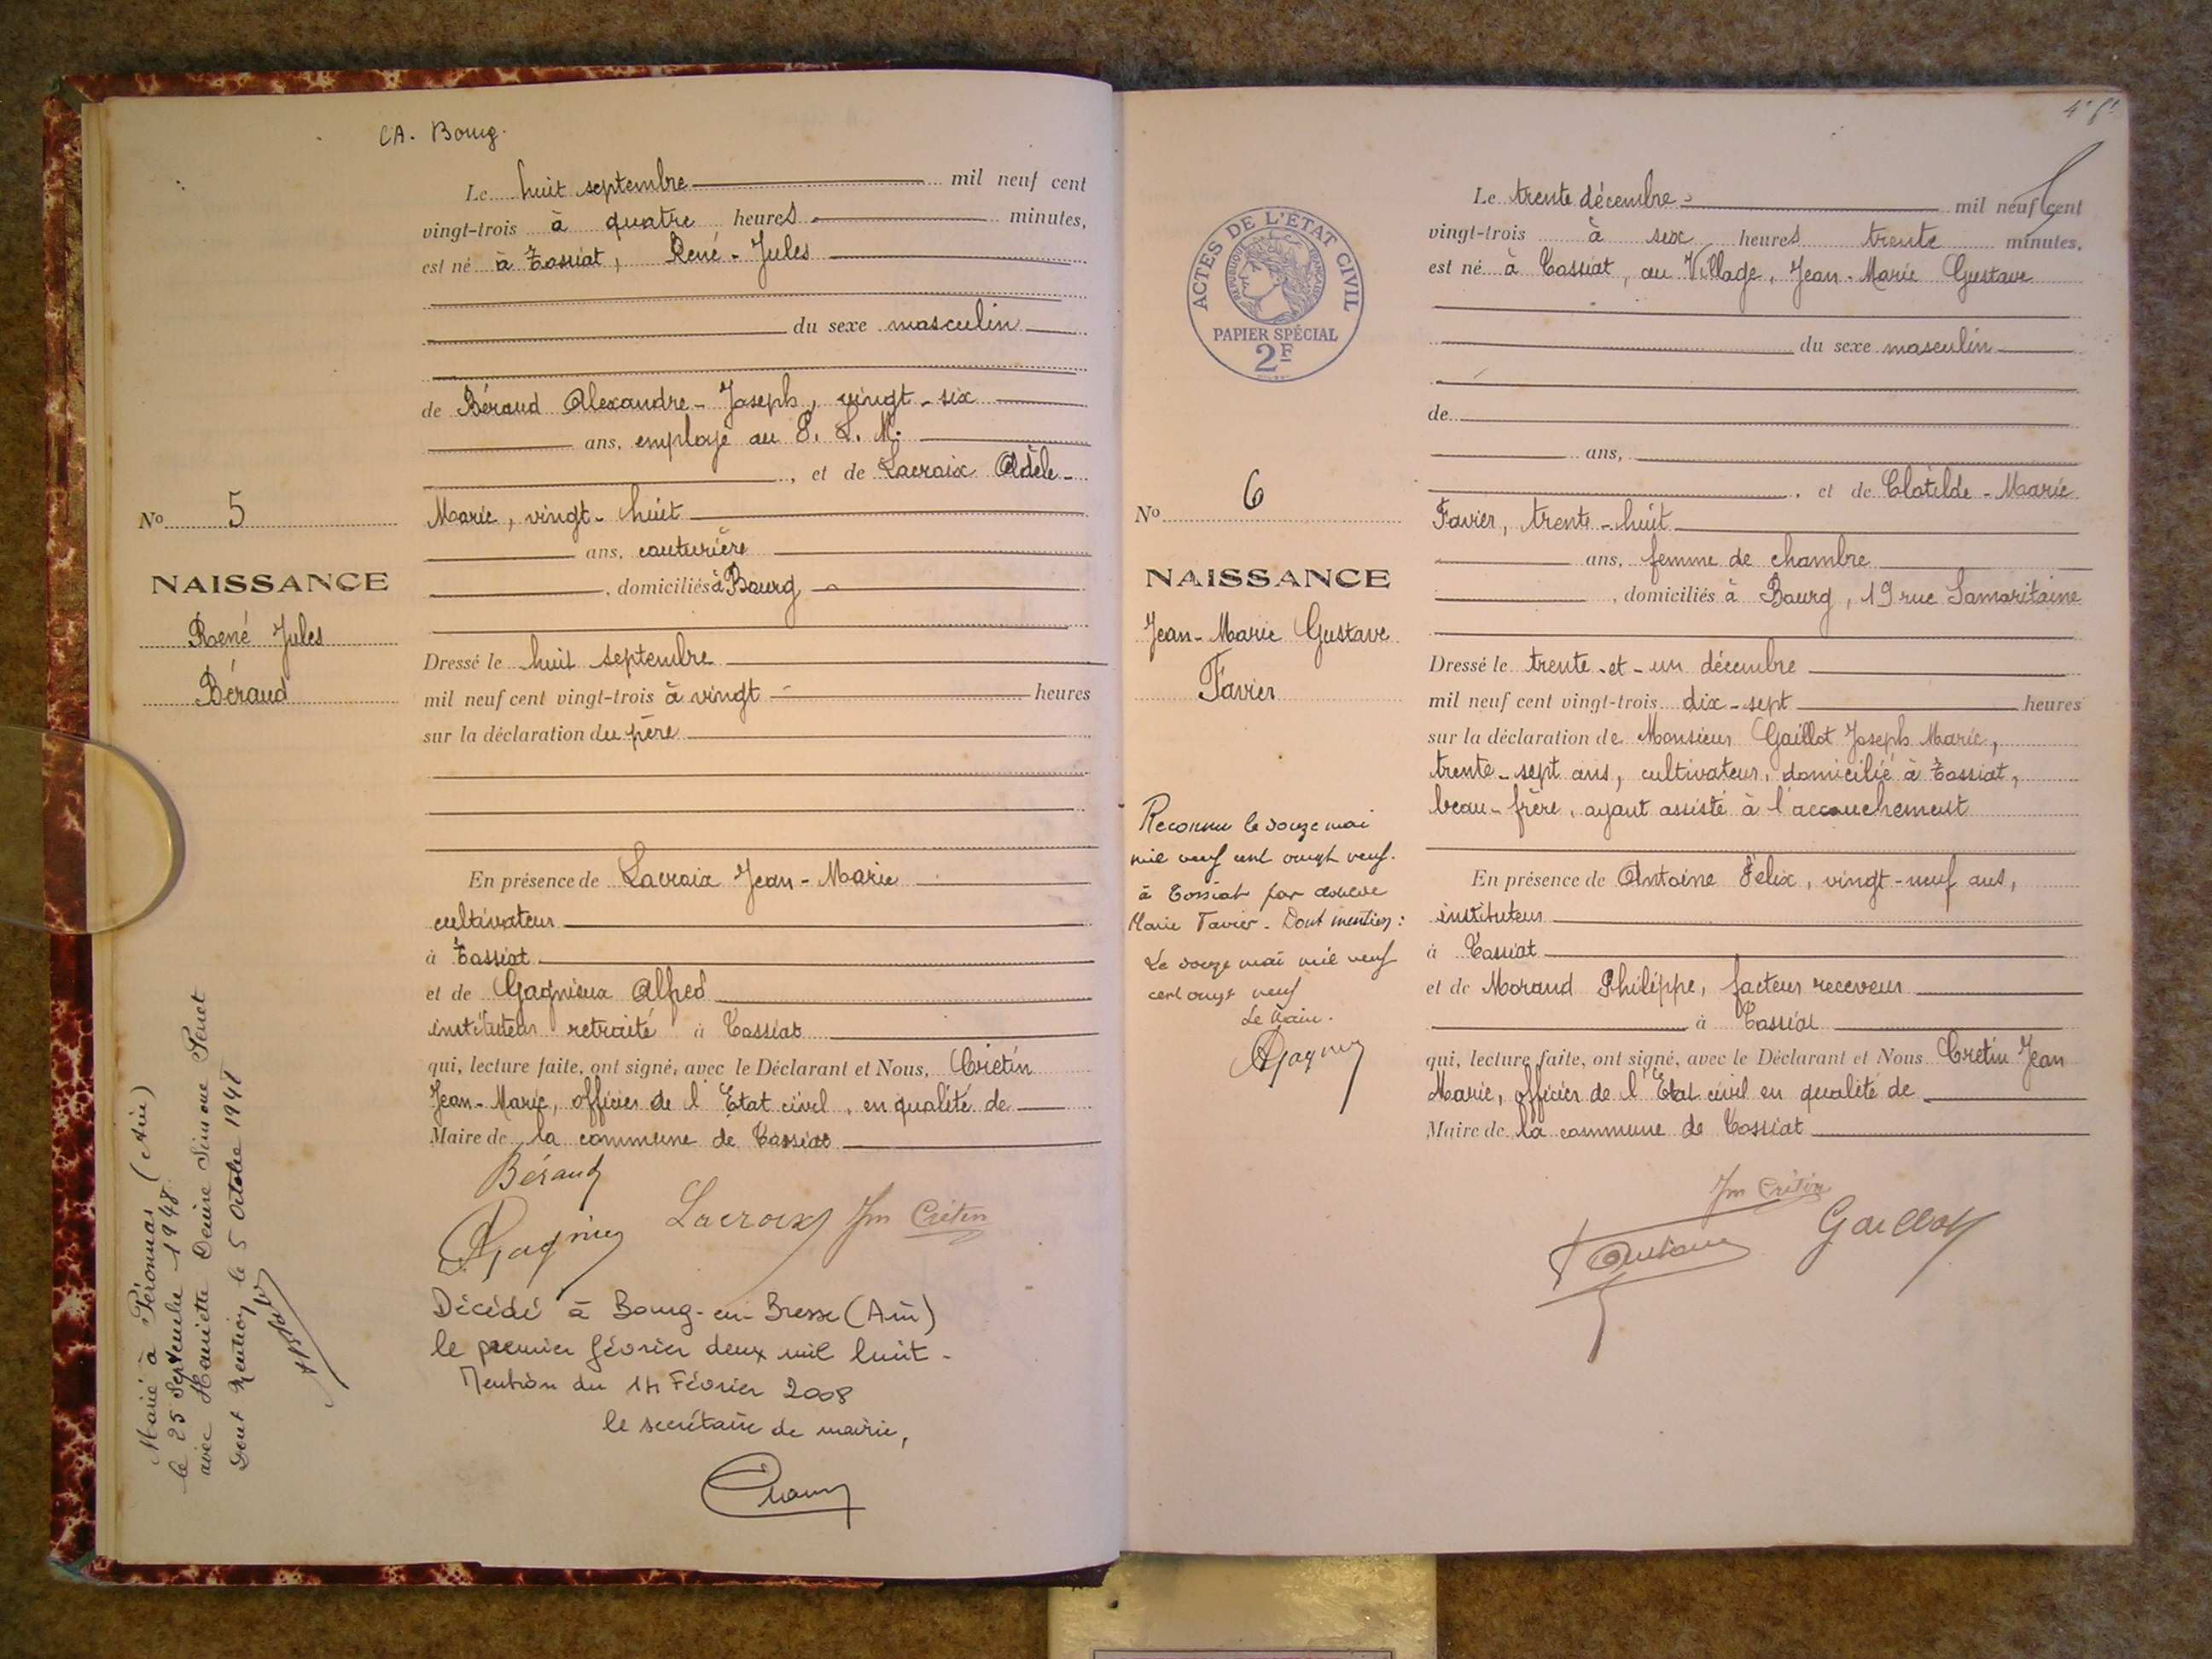 CA. Bourg.
Le huit septembre mil neuf cent
vingt-trois à quatre heures minutes,
est né à Tossiat, René-Jules
du sexe masculin
de Béraud Alexandre-Joseph, vingt-six
ans, employé au P. L. M.
, et de Lacroix Adèle-
Marie, vingt-huit
ans, couturière
, domiciliés à Bourg
No 5
NAISSANCE
René Jules
Béraud
Dressé le huit septembre
mil neuf cent vingt-trois à vingt heures
sur la déclaration du père
En présence de Lacroix Jean-Marie
cultivateur
à Tossiat
et de Gagnieux Alfred
instituteur retraité à Tossiat
qui, lecture faite, ont signé, avec le Déclarant et Nous, Crétin
Jean-Marie, officier de l'Etat civil, en qualité de
Maire de la commune de Tossiat
Béraud
Lacroix Jm Crétin
Décédé à Bourg-en-Bresse (Ain)
le premier février deux mil huit-
Mention du 14 Février 2008
le secrétaire de mairie,
Marié à Péronnas (Ain)
le 25 Septembre 1948
avec Henriette Denise Simone Penet
Dont Mention le 5 Octobre 1948
ACTES DE L'ÉTAT CIVIL
RÉPUBLIQUE FRANÇAISE
PAPIER SPÉCIAL
2F
Le trente décembre mil neuf cent
vingt-trois à six heures trente minutes,
est né à Tossiat, au Village, Jean-Marie Gustave
du sexe masculin
de
ans,
, et de Clotilde-Marie
Favier, trente-huit
ans, femme de chambre
, domiciliés à Bourg, 19 rue Samaritaine
No 6
NAISSANCE
Jean-Marie Gustave
Favier
Dressé le trente-et-un décembre
mil neuf cent vingt-trois dix-sept heures
sur la déclaration de Monsieur Gaillot Joseph Marie,
trente-sept ans, cultivateur, domicilié à Tossiat,
beau-frère, ayant assisté à l'accouchement
En présence de Antoine Félix, vingt-neuf ans,
instituteur
à Tossiat
et de Morand Philippe, facteur receveur
à Tossiat
qui, lecture faite, ont signé, avec le Déclarant et Nous Crétin Jean
Marie, officier de l'Etat civil en qualité de
Maire de la commune de Tossiat
Jm Crétin
Antoine Gaillot
Reconnu le douze mai
mil neuf cent vingt neuf.
à Tossiat par
Marie Favier. Dont mention:
Le douze mai mil neuf
cent vingt neuf
Le Maire.